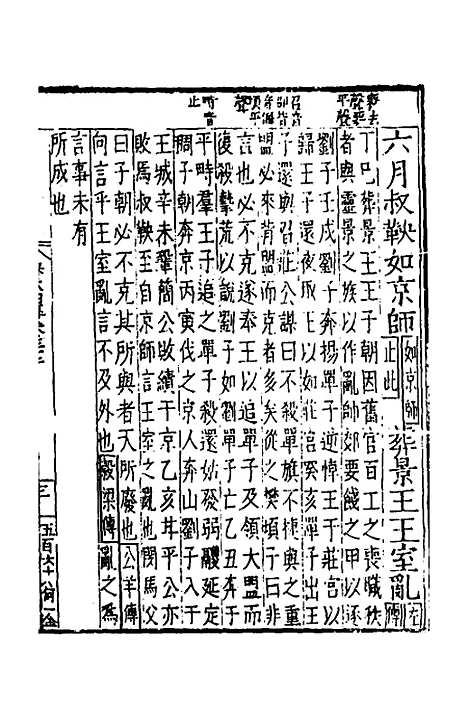 喪去聲要平聲
召音邵背音佩頃平聲
時音止
六月叔鞅如京師如京師止此葬景王王室亂左傳
丁巳葬景王王子朝因舊官百工之喪職秩
者與靈景之族以作亂帥郊要餞之甲以逐
劉子壬戌劉子奔揚單子逆悼王于莊宮以
歸王子還夜取王以如莊宮癸亥單子出王
子還與召莊公謀曰不殺單旗不捷與之重
盟必來背盟而克者多矣從之樊頃子曰非
言也必不克遂奉王以追單子及領大盟而
復殺摯荒以說劉子如劉單子亡乙丑奔于
平畤羣王子追之單子殺還姑發弱鬷延定
稠子朝奔京丙寅伐之京人奔山劉子入于
王城辛未鞏簡公敗績于京乙亥甘平公亦
敗焉叔鞅至自京師言王室之亂也閔馬父
曰子朝必不克其所與者天所廢也公羊傳
何言乎王室亂言不及外也穀梁傳亂之爲
言事未有
所成也
三
五百六十八